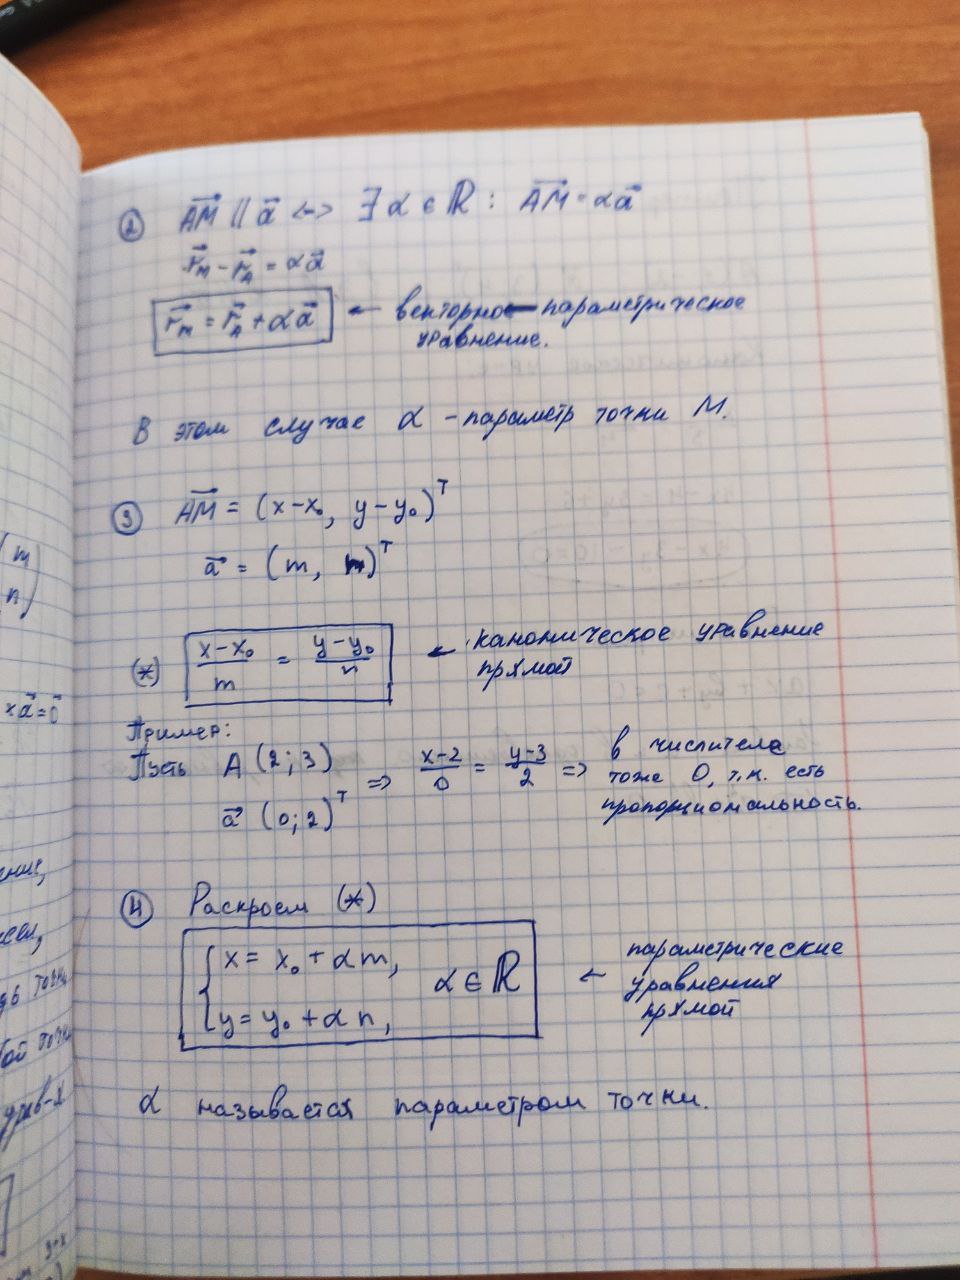 ② AM⃗ || a⃗ <-> ∃ α ∈ ℝ : AM⃗ = αa⃗
r⃗_M - r⃗_A = αa⃗
r⃗_M = r⃗_A + αa⃗ ← векторно - параметрическое
уравнение.
В этом случае α - параметр точки M.
③ AM⃗ = (x-x₀, y-y₀)ᵀ
a⃗ = (m, n)ᵀ
(*) (x-x₀)/m = (y-y₀)/n ← каноническое уравнение
прямой
Пример:
Пусть A (2;3) => (x-2)/0 = (y-3)/2 => в числителе
тоже 0, т.к. есть
a⃗ (0;2)ᵀ пропорциональность.
④ Раскроем (*)
{ x = x₀ + αm,
α ∈ ℝ ← параметрические
уравнения
прямой
y = y₀ + αn,
α называется параметром точки.
(m
n)
×a⃗=0⃗